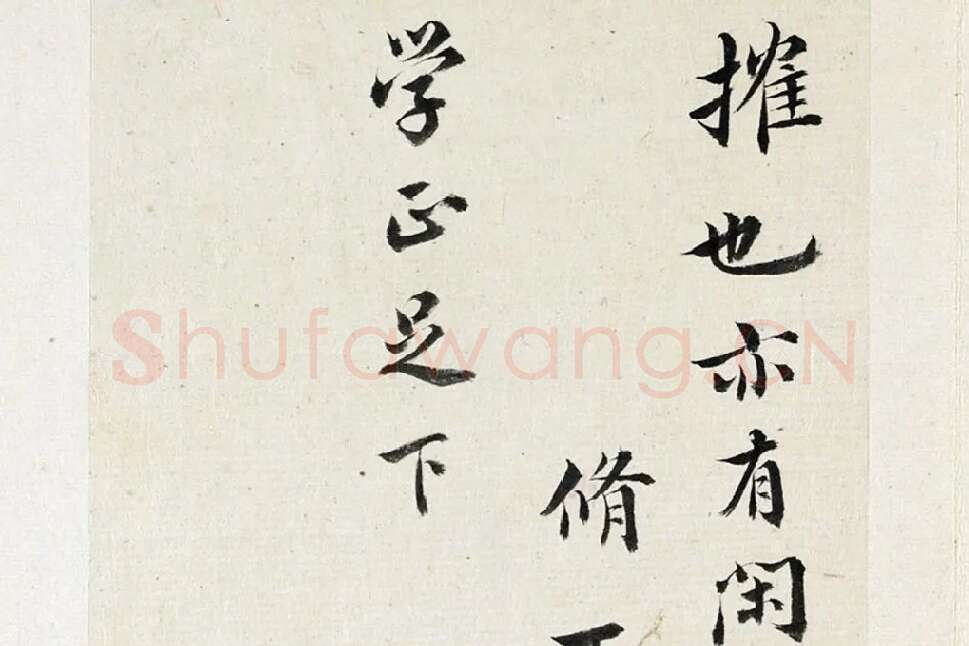 搉也亦有闲
脩
学正足下
Shufawang.CN